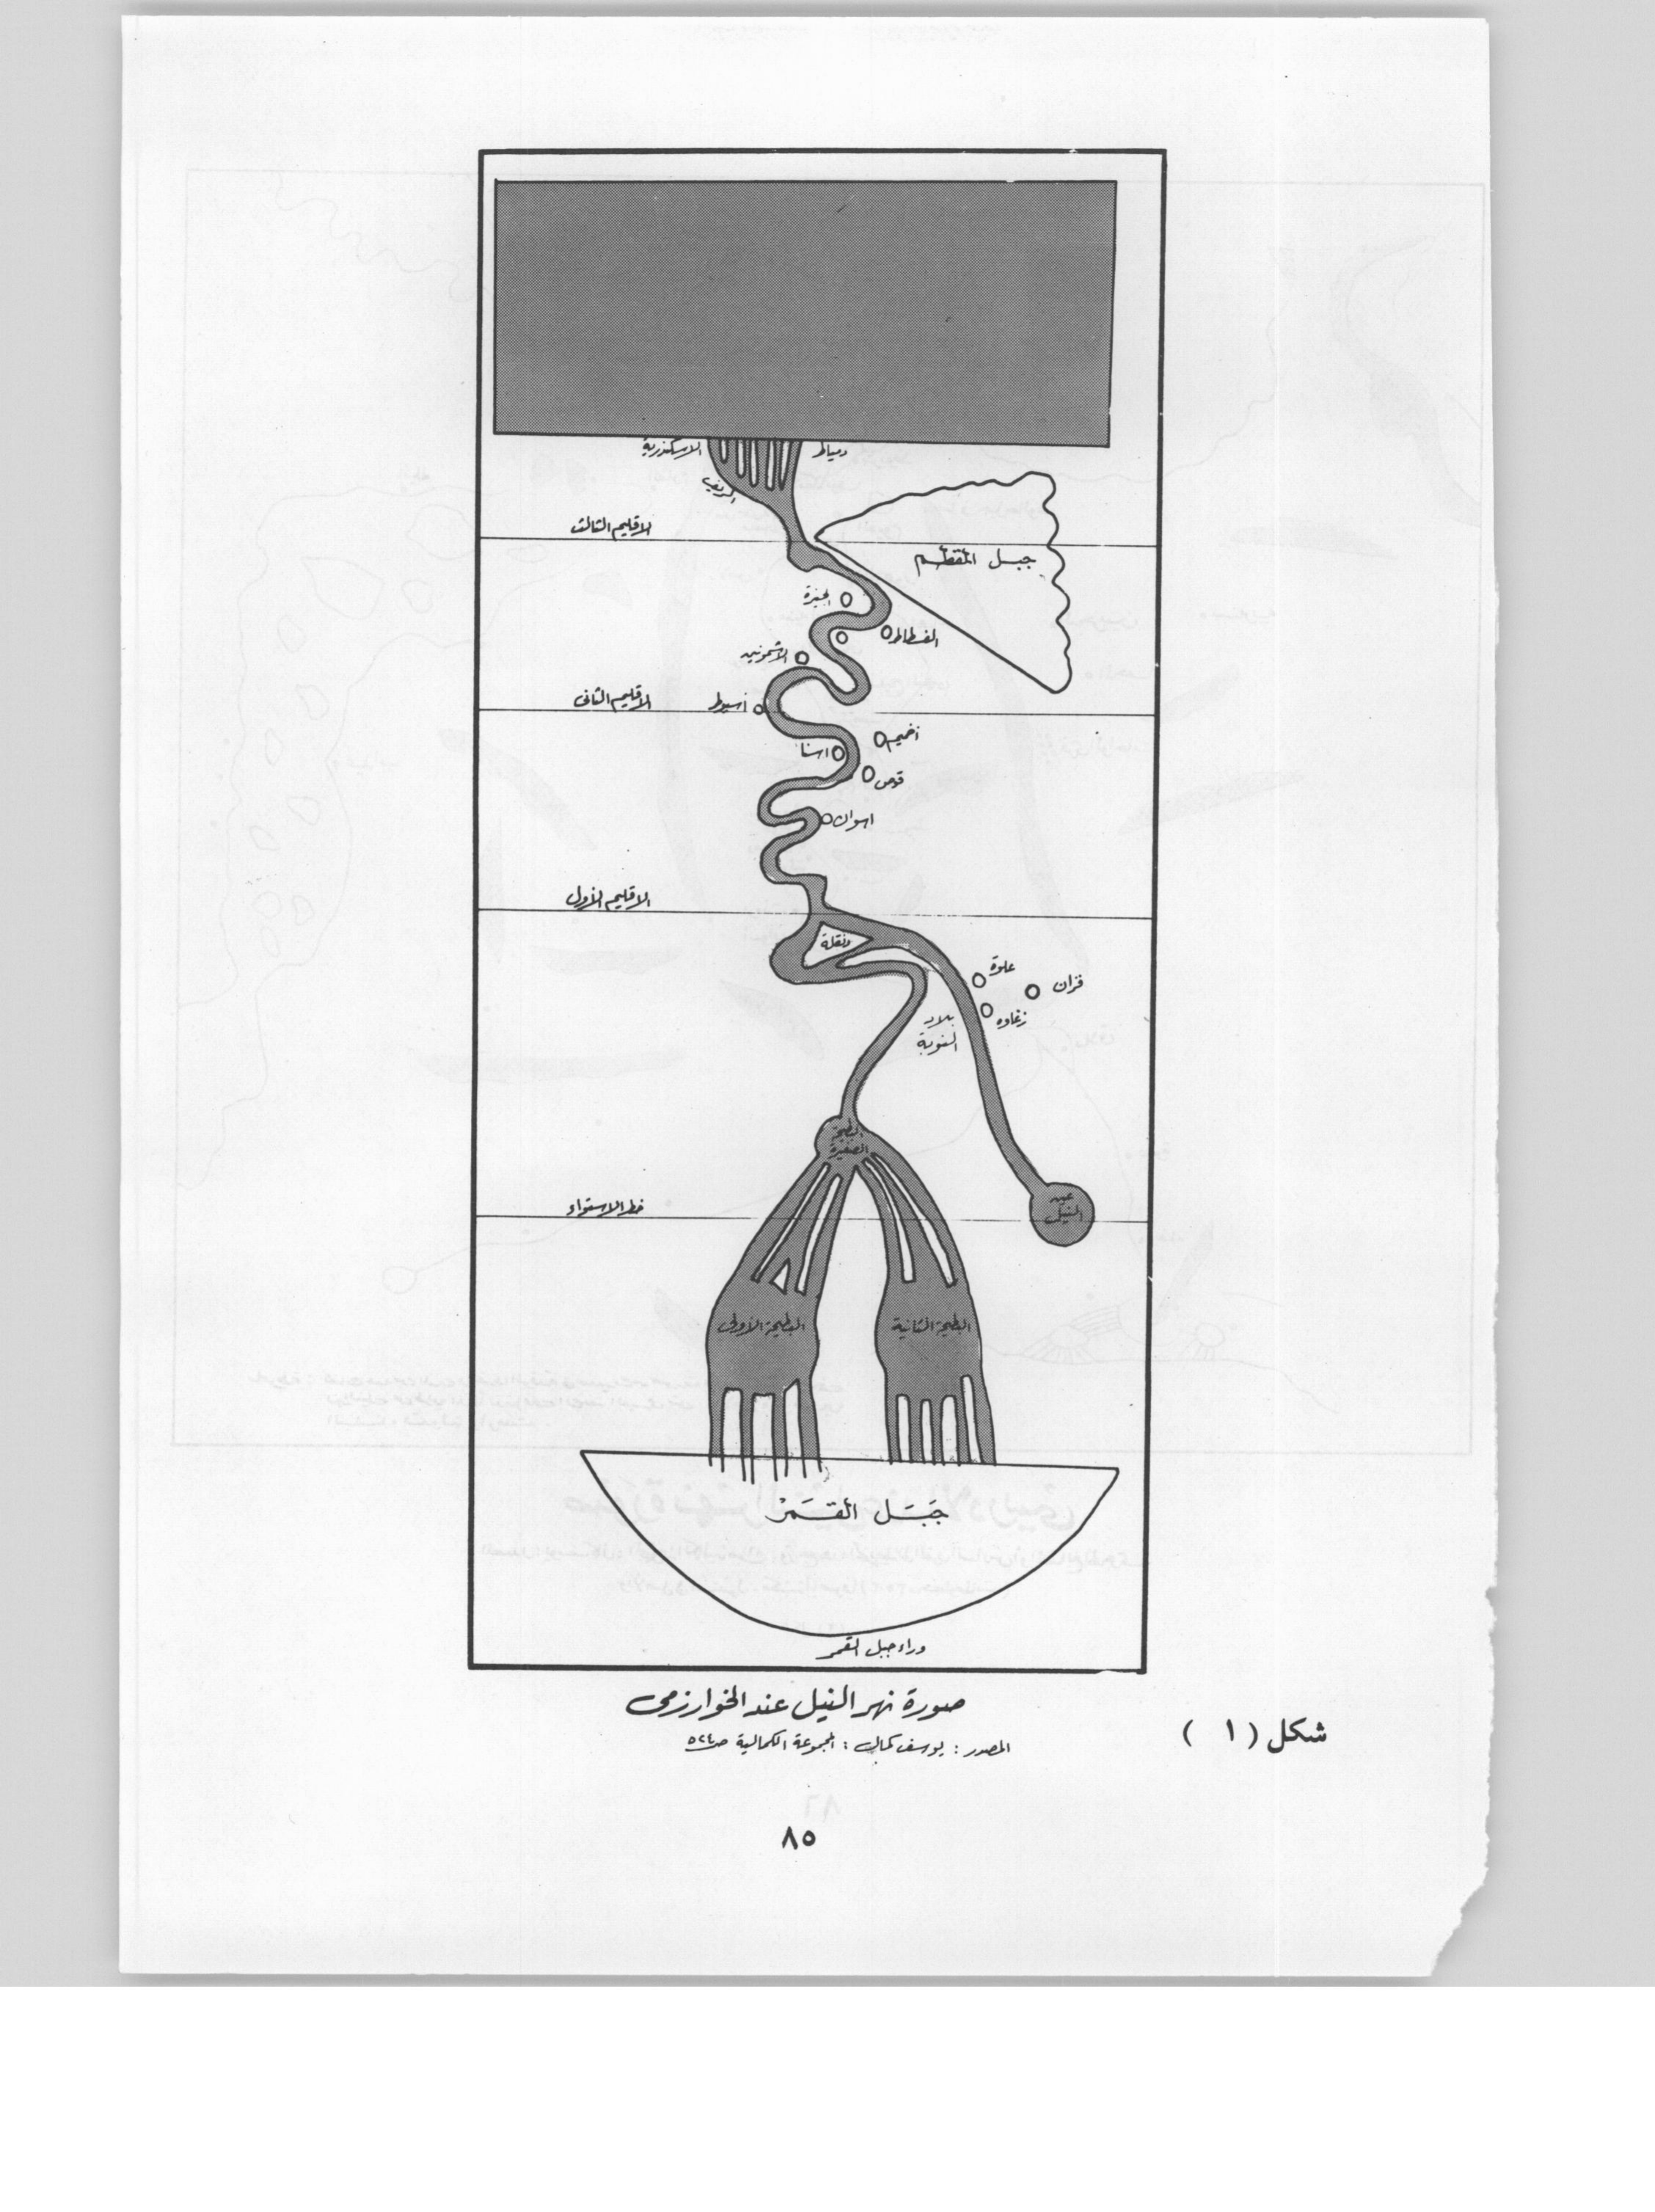 الاسكندرية
دمياط
الريف
الاقليم الثالث
جبل المقطم
الجيزة
الفسطاط
الاشمونين
الاقليم الثانى
أسيوط
أخميم
اسنا
قوص
اسوان
الاقليم الأول
دنقلة
علوة
فزان
زغاوه
بلاد
النوبة
البطيحة
الصغيرة
عين
النيل
خط الاستواء
البطيحة الأولى
البطيحة الثانية
جَبَل القَمَرْ
وراء جبل القمر
صورة نهر النيل عند الخوارزمى
شكل ( ١ )
المصدر : يوسف كمال : المجموعة الكمالية ص٥٢٤
٨٥